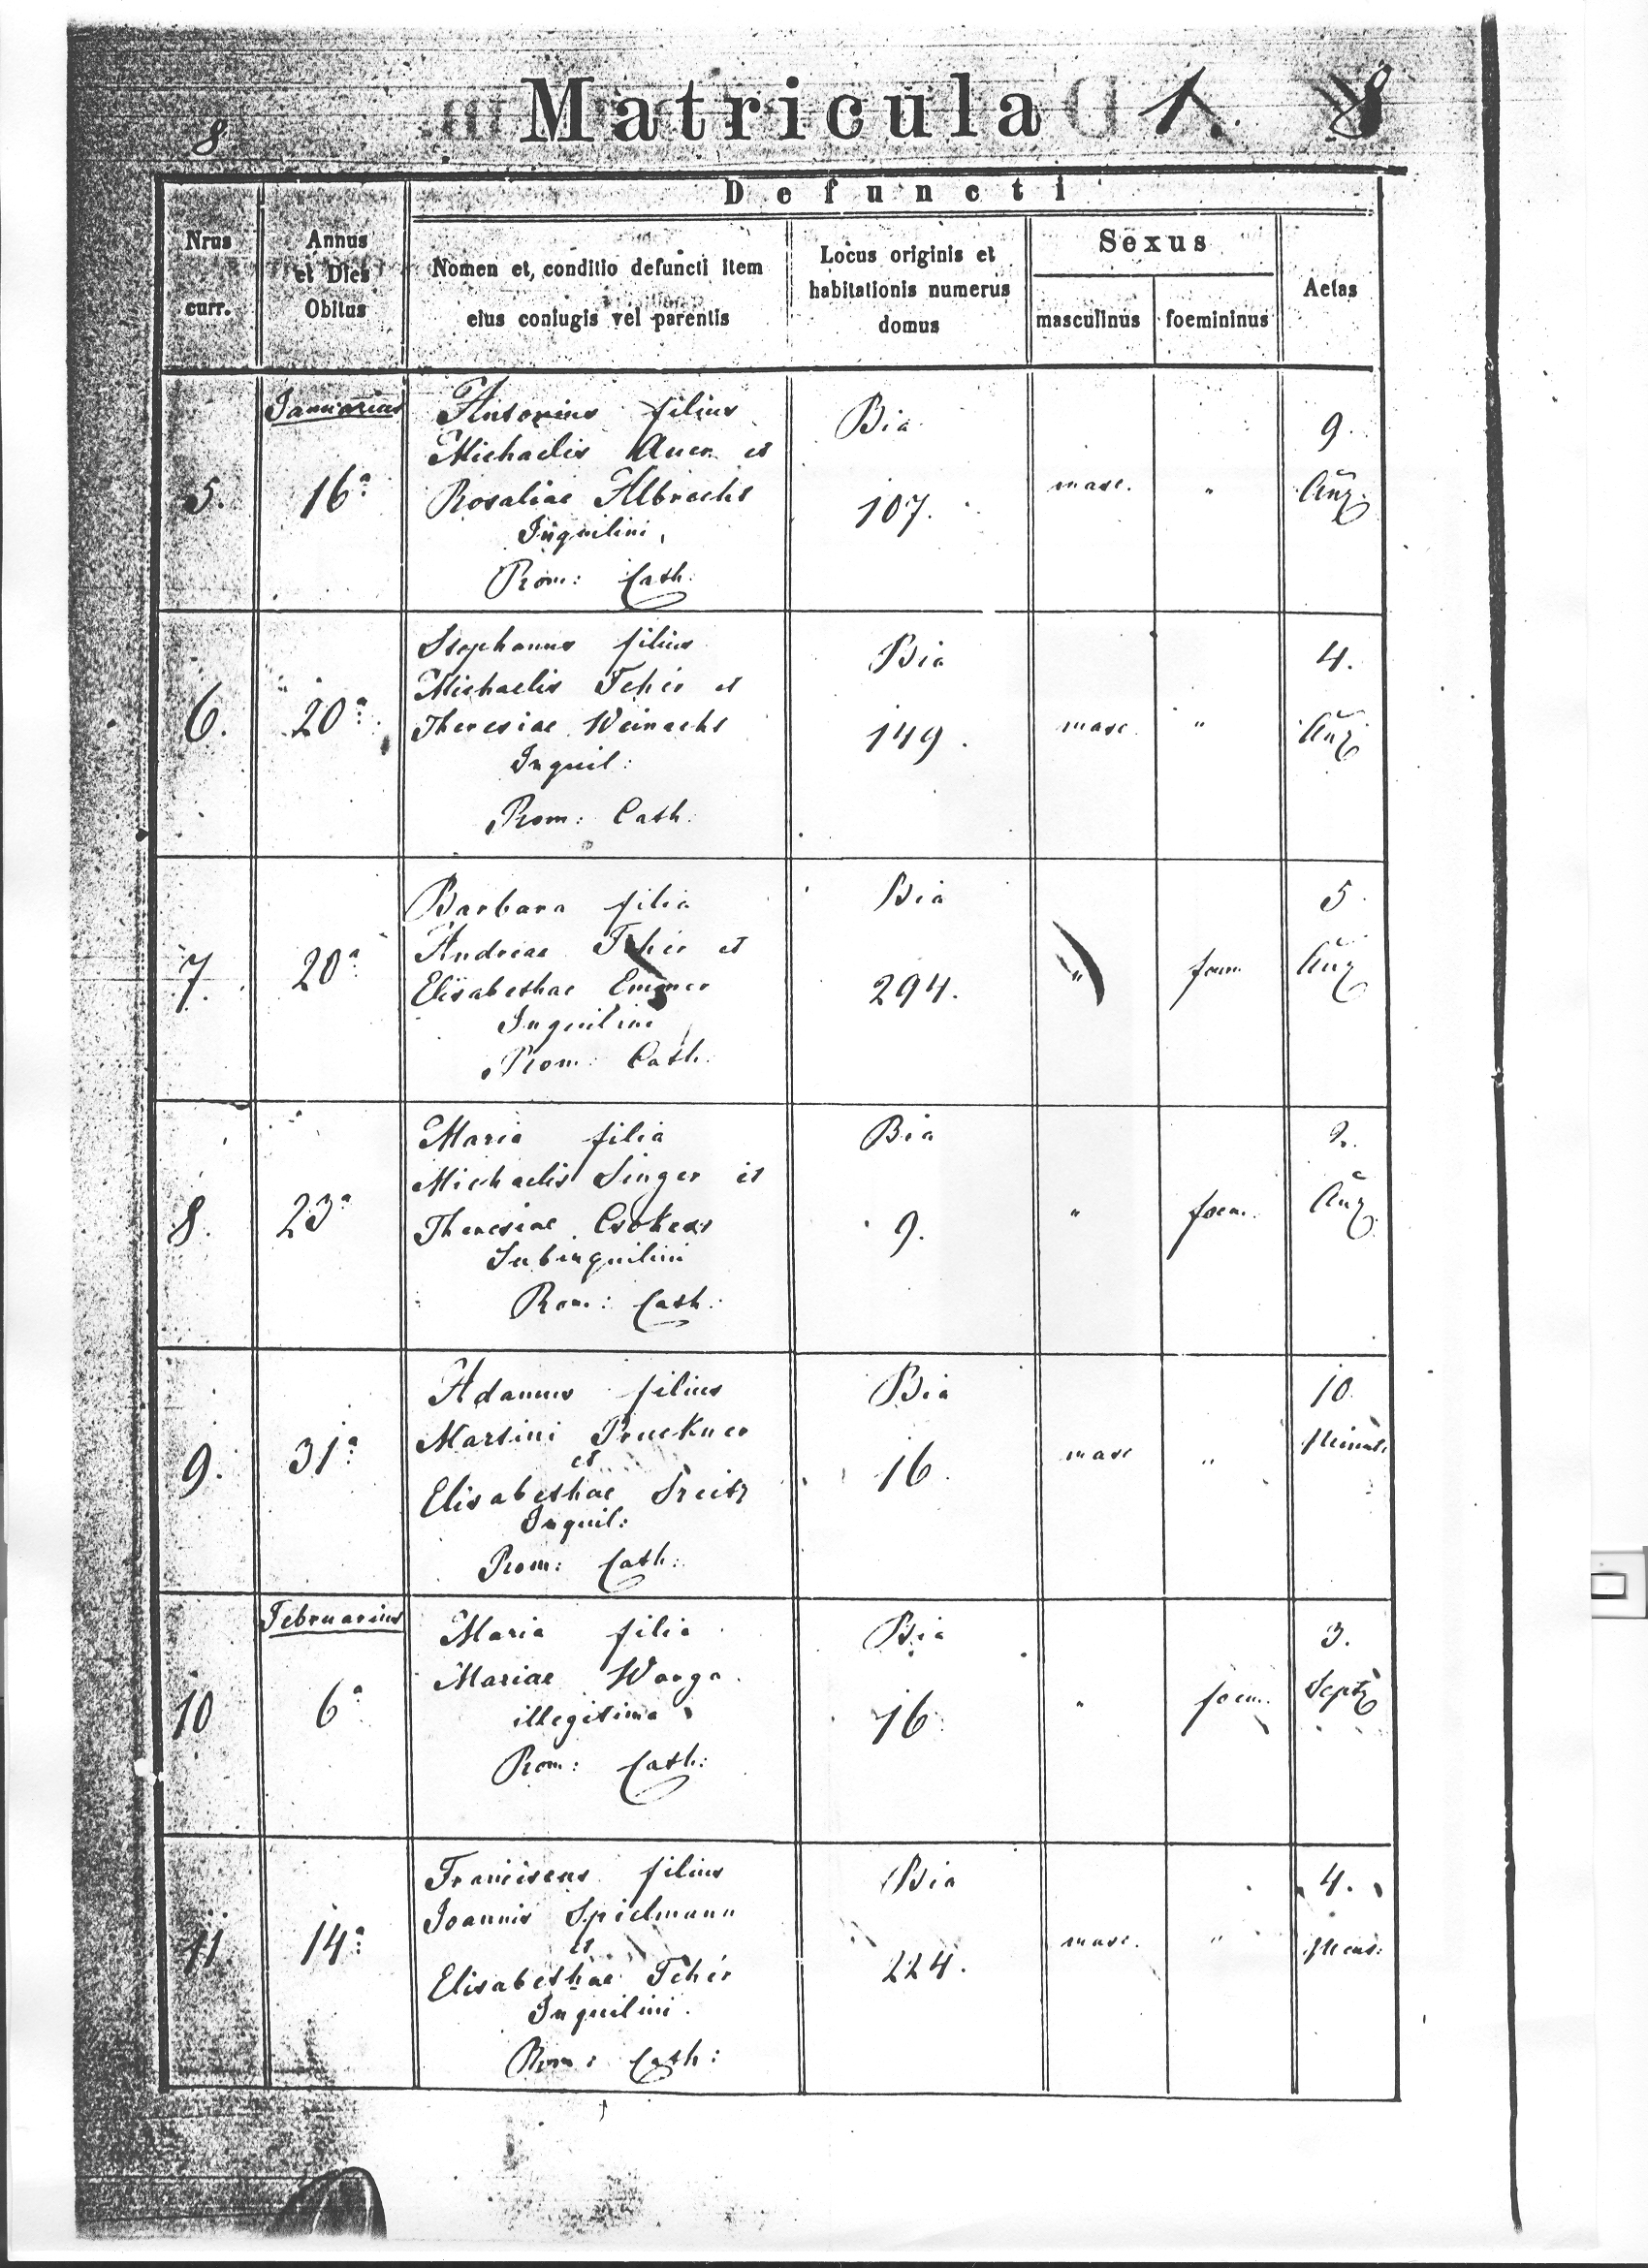 8
Matricula
1.
8
Defuncti
Nrus
curr.
Annus
et Dies
Obitus
Nomen et conditio defuncti item
eius coniugis vel parentis
Locus originis et
habitationis numerus
domus
Sexus
masculinus
foemininus
Aetas
Januarius
5.
16a
Antonius filius
Michaelis Auer et
Rosaliae Albrecht
Inquilini
Rom: Cath:
Bia
107.
masc.
"
9.
6.
20a
Stephanus filius
Michaelis Fehér et
Theresiae Weinacht
Inquil:
Rom: Cath.
Bia
149.
masc.
"
4.
7.
20a
Barbara filia
Andreae Fehér et
Elisabethae Emmer
Inquilini
Rom: Cath.
Bia
294.
"
foem.
5.
8.
23a
Maria filia
Michaelis Singer et
Theresiae
Subinquilini
Rom: Cath:
Bia
9.
"
foem.
2.
9.
31a
Adamus filius
Martini Pruckner
et
Elisabethae
Inquil:
Rom: Cath:
Bia
16.
masc
"
10.
Februarius
10
6a
Maria filia
Mariae Warga
illegitima
Rom: Cath:
Bia
16.
"
foem.
3.
Sept
11
14a
Franciscus filius
Joannis Spielmann
et
Elisabethae Fehér
Inquilini.
Rom: Cath:
Bia
224.
masc.
"
4.
Mens: